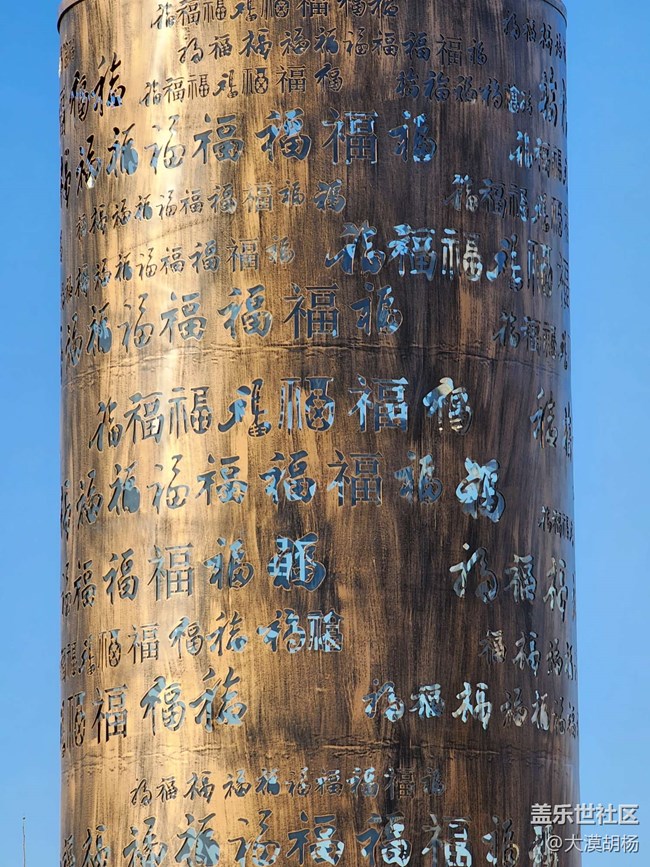 福福福福福福福福福福福福福
福福福福福福福福福福
福福福福福福福福福福福福福福福
福福福福福福福福福福福
福福福福福福福福福福福福福福福
福福福福福福福福福福福福福福福
福福福福福福福福福福福
福福福福福福福福福
福福福福福福福福福福福福
福福福福福福福福福
福福福福福福福福福福福福
福福福福福福福福福福福福
福福福福福福福福福福
福福福福福福福福福福
盖乐世社区
@大漠胡杨